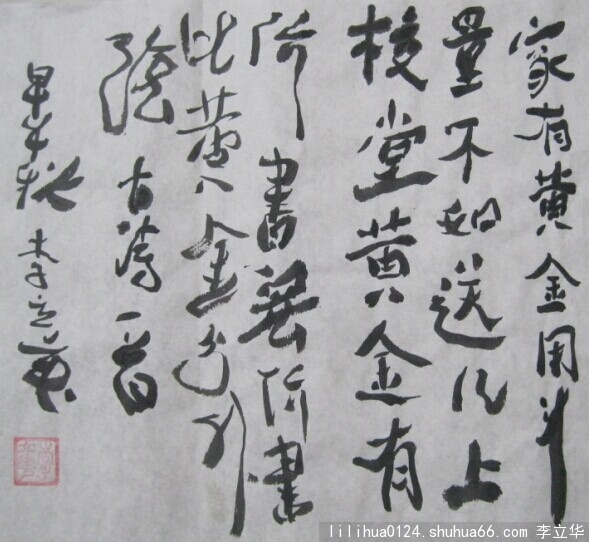 家有黄金用斗
量不如送儿上
校堂黄金有
价書無价書
比黄金
古诗一首
秋 李立華
lilihua0124.shuhua66.com 李立华